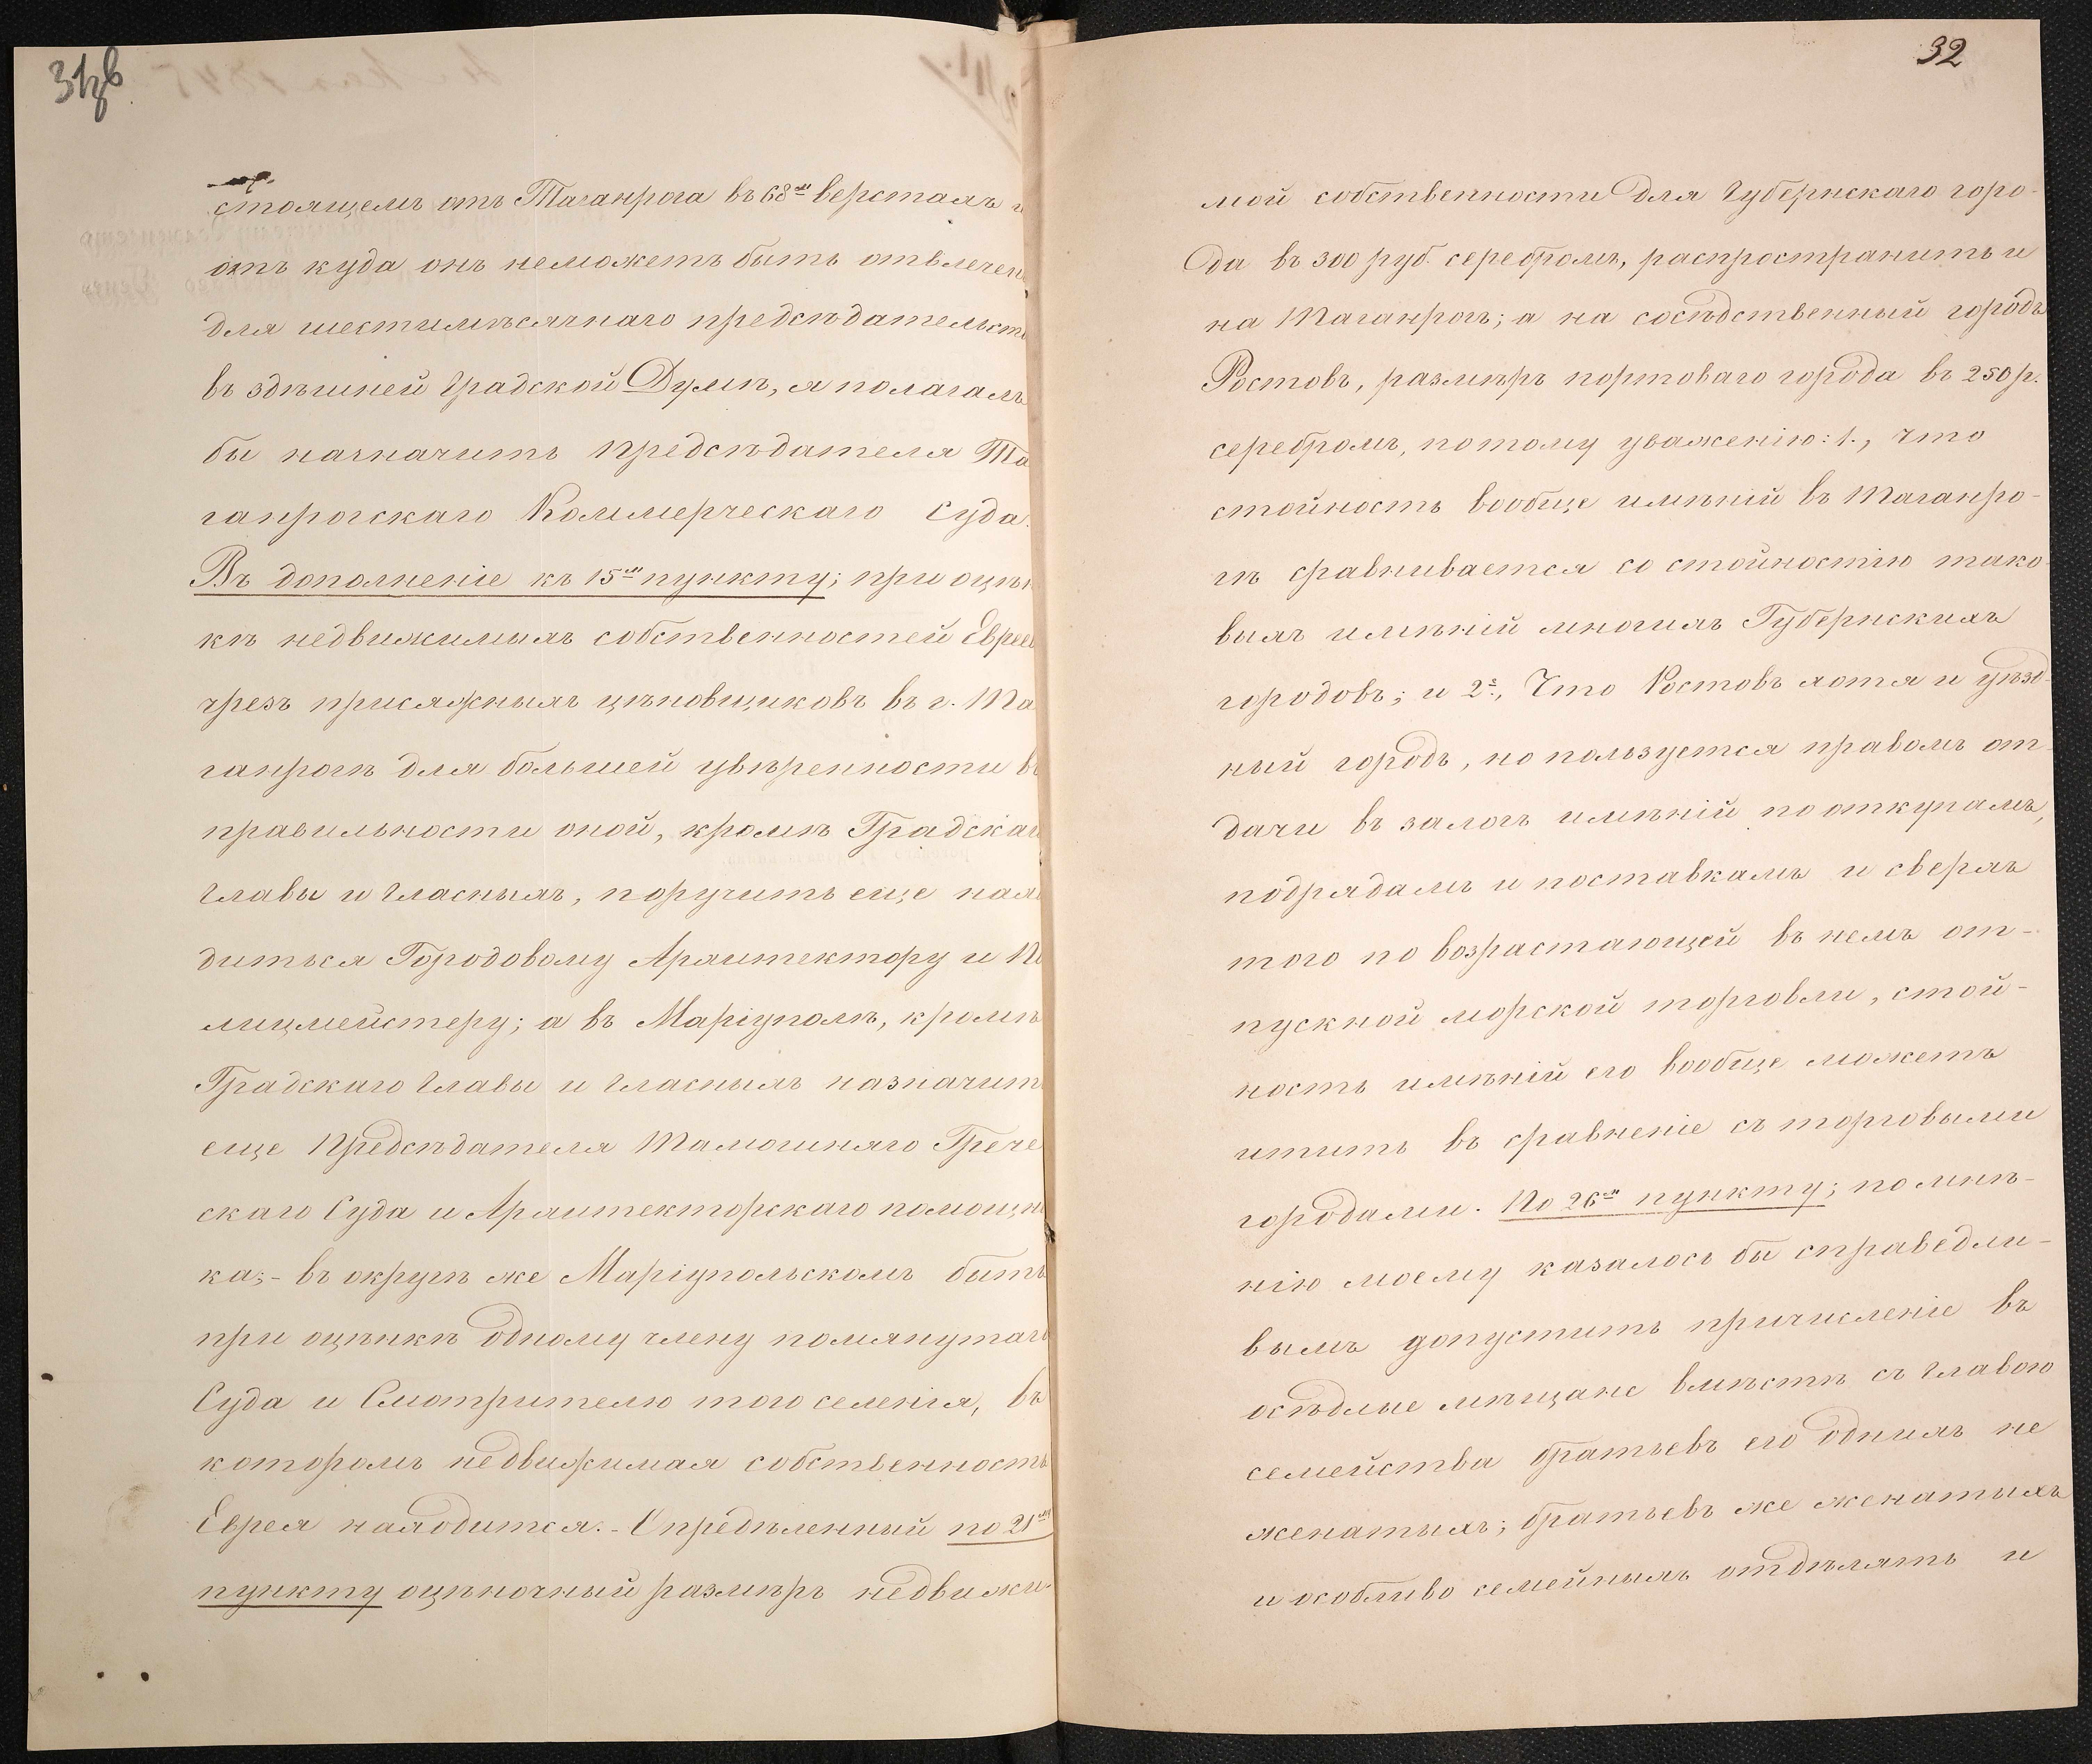 31об
стоящемъ отъ Таганрога въ 68ми верстахъ и
отъ куда онъ неможетъ быть отвлечен
для шестимѣсячнаго предсѣдательст
въ здѣшней Градской Думѣ, я полагалъ
бы назначить Предсѣдателя Та
ганрогскаго Коммерческаго Суда.
Въ дополненіе къ 15му пункту; при оцѣн
кѣ недвижимыхъ собственностей Еврее
чрезъ присяжныхъ цѣновщиковъ въ г. Та
ганрогѣ для большей увѣренности въ
правильности оной, кромѣ Градскаг
Главы и Гласныхъ, поручить еще нахо
диться Городовому Архитектору и По
лицмейстеру; а въ Маріуполѣ, кромѣ
Градскаго Главы и Гласныхъ назначит
еще Предсѣдателя Тамошняго Грече
скаго Суда и Архитекторскаго помощни
ка;- въ округѣ же Маріупольскомъ быть
при оцѣнкѣ одному члену помянутаго
Суда и Смотрителю того селенія, въ
которомъ недвижимая собственность
Еврея находится.- Опредѣленный по 21му
пункту оцѣночный размѣръ недвижи-
32
мой собственности для Губернскаго горо-
да въ 300 руб. серебромъ, распространить и
на Таганрогъ; а на сосѣдственный городъ
Ростовъ, размѣръ портоваго города въ 250 р.
серебромъ, потому уваженію: 1., что
стойность вообще имѣній въ Таганро-
гѣ сравнивается со стойностію тако-
выхъ имѣній многихъ Губернскихъ
городовъ; и 2е., Что Ростовъ хотя и уѣзд-
ный городъ, но пользуется правомъ от-
дачи въ залогъ имѣній по откупамъ,
подрядамъ и поставкамъ и сверхъ
того по возрастающей въ немъ от-
пускной морской торговли, стой-
ность имѣній его вообще можетъ
итить въ сравненіе съ торговыми
городами. По 26му пункту; по мнѣ-
нію моему казалось бы справедли-
вымъ допустить причисленіе въ
осѣдлые мѣщане вмѣстѣ съ главою
семейства братьевъ его однихъ не
женатыхъ; братьевъ же женатыхъ
и особливо семейныхъ отдѣлять и